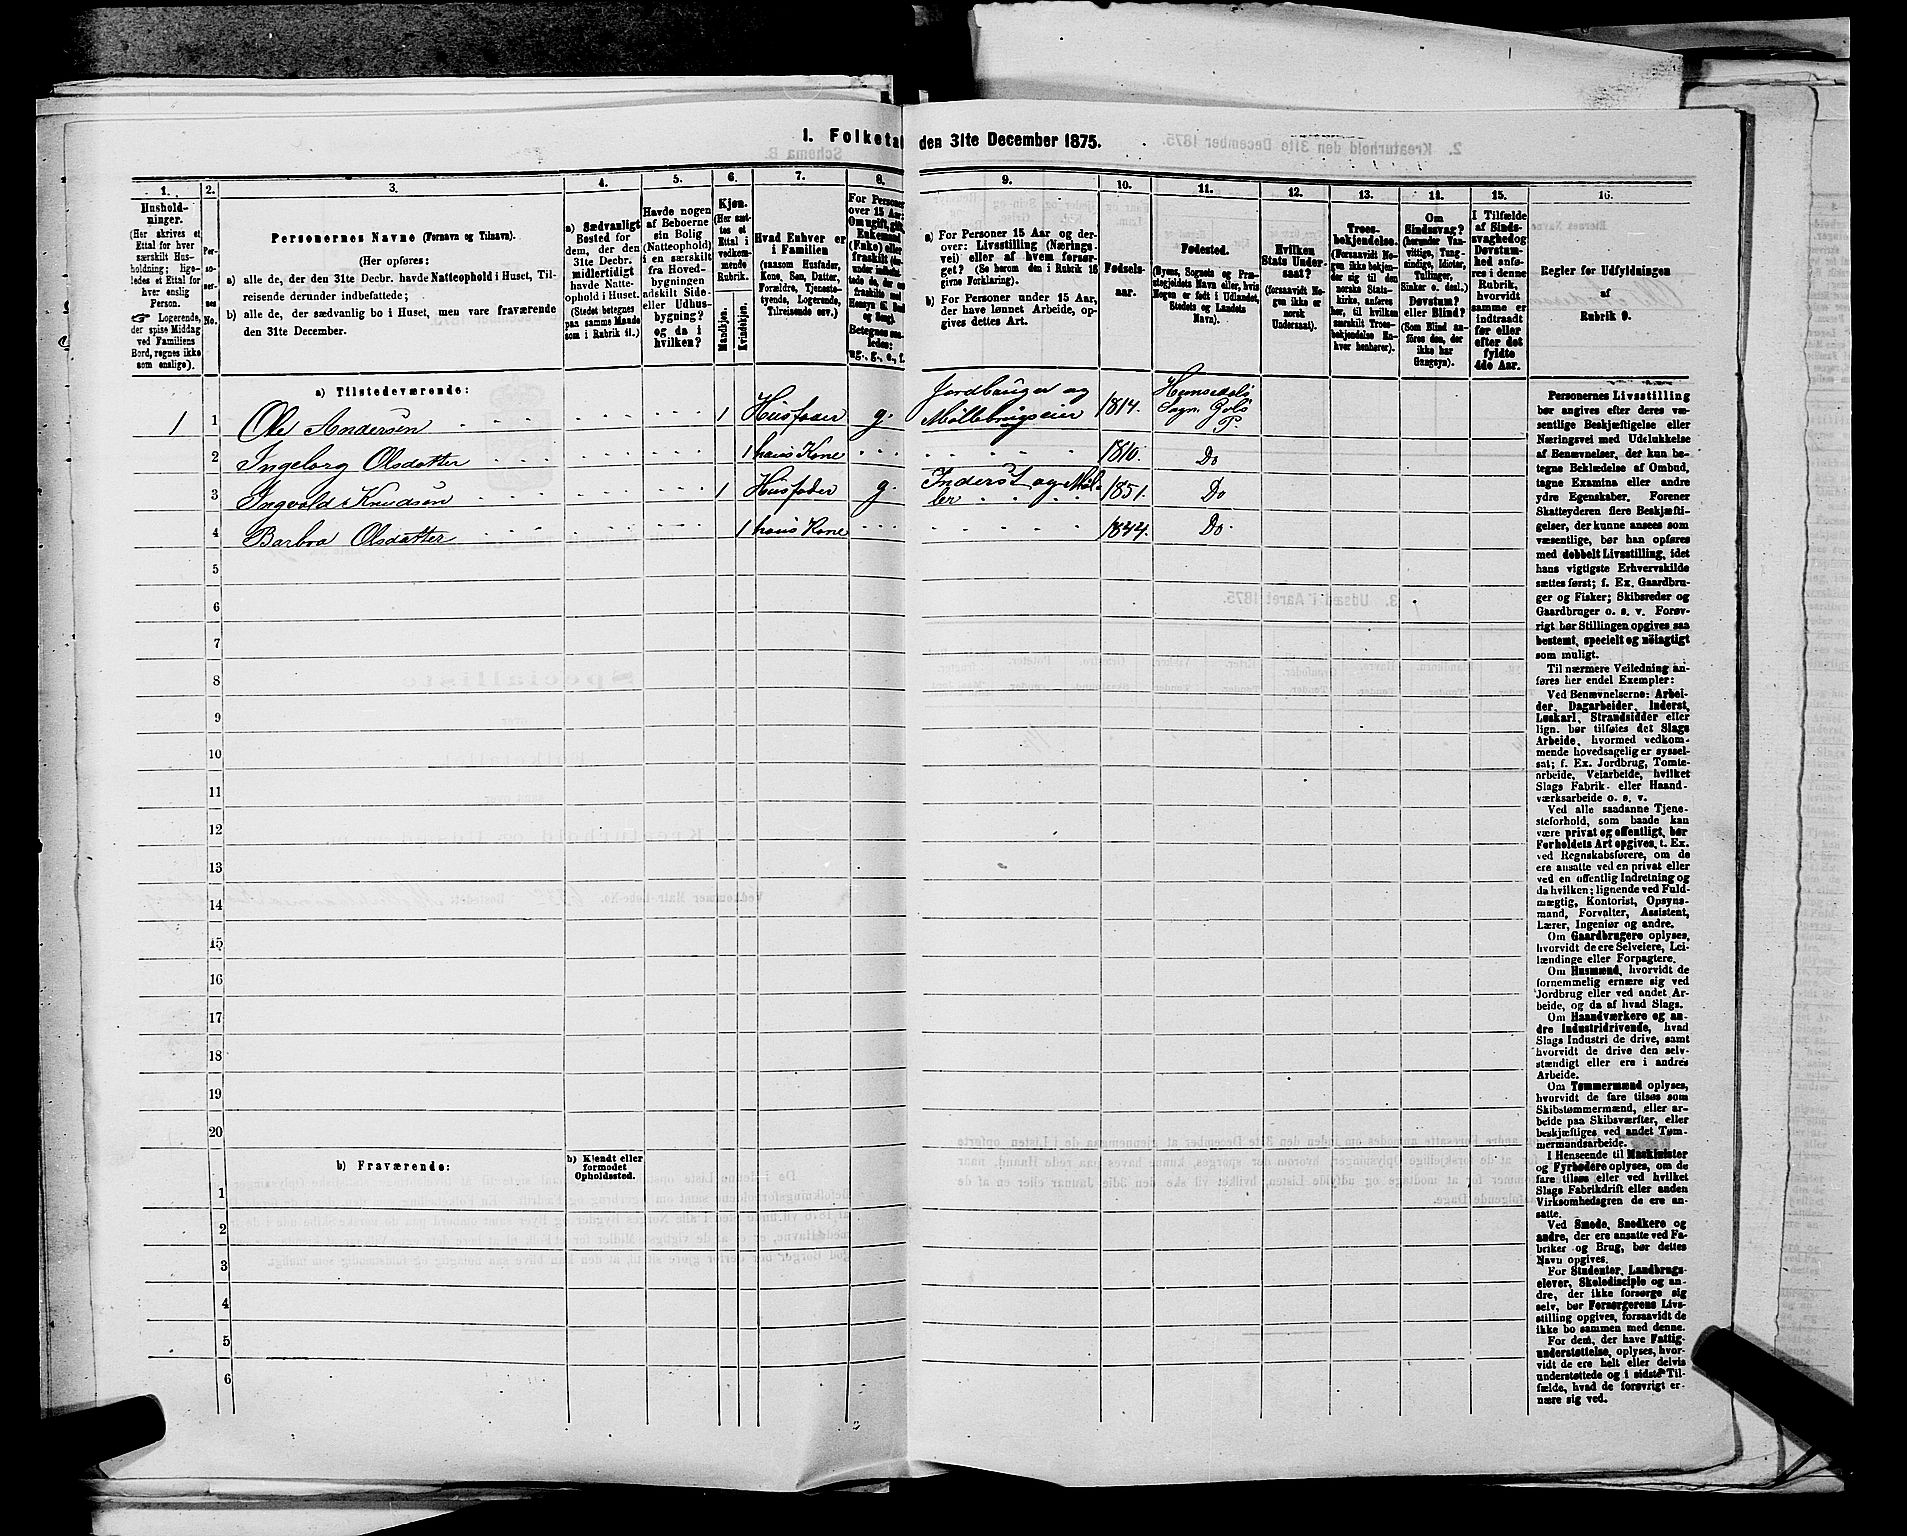 1. Folketal den 31te December 1875.
1. 2. 3. 4. 5. 6. 7. 8. 9. 10. 11. 12. 13. 14. 15. 16.
Hushold-
ninger.
(Her skrives et
Ettal for hver
særskilt Hus-
holdning; lige-
ledes et Ettal for
hver enslig
Person.
☞ Logerende,
der spise Middag
ved Familiens
Bord, regnes ikke
som enslige).
Per-
so-
ner-
nes
No.
Personernes Navne (Fornavn og Tilnavn).
(Her opføres:
a) alle de, der den 31te Decbr. havde Natteophold i Huset, Til-
reisende derunder indbefattede;
b) alle de, der sædvanlig bo i Huset, men vare fraværende
den 31te December.
a) Sædvanligt
Bosted for
dem, der den
31te Decbr.
midlertidigt
havde Natte-
ophold i Huset.
(Stedet betegnes
paa samme Maade
som i Rubrik 11.)
Havde nogen
af Beboerne
sin Bolig
(Natteophold)
i en særskilt
fra Hoved-
bygningen
adskilt Side-
eller Udhus-
bygning?
og da i
hvilken?
Kjøn.
(Her sæt-
tes et
Ettal i
vedkom-
mende
Rubrik.
Mandkjøn.
Kvindekjøn.
Hvad Enhver er
i Familien
(saasom Husfader,
Kone, Søn, Datter,
Forældre, Tjeneste-
tyende, Logerende,
Tilreisende osv.)
For Personer
over 15 Aar:
Om ugift, gift,
Enkemand
(Enke) eller
fraskilt
Betegnes
ug., g., e., f.
a) For Personer 15 Aar og der-
over: Livsstilling (Nærings-
vei) eller af hvem forsør-
get? (Se herom den i Rubrik 16
givne Forklaring).
b) For Personer under 15 Aar,
der have lønnet Arbeide, op-
gives dettes Art.
Fødsels-
aar.
Fødested.
(Byens, Sognets og Præ-
stegjeldets Navn eller, hvis
Nogen er født i Udlandet,
Stedets og Landets
Navn).
Hvilken
Stats Under-
saat?
(forsaavidt No-
gen ikke er
norsk
Undersaat).
Troes-
bekjendelse.
(Forsaavidt No-
gen ikke bekjen-
der sig til den
norske Stats-
kirke, anføres
her, til hvilken
særskilt Troes-
bekjendelse En-
hver henhører).
Om
Sindssvag?
(herunder Van-
vittige, Tung-
sindige, Idioter,
Tullinger,
Sinker o. desl.)
Døvstum?
eller Blind?
(Som Blind an-
føres den, der
ikke har
Gangsyn).
I Tilfælde
af Sinds-
svaghed og
Døvstum-
hed anfø-
res i denne
Rubrik,
hvorvidt
samme er
indtraadt
før eller
efter det
fyldte
4de Aar.
Regler for Udfyldningen
af
Rubrik 9.
a) Tilstedeværende:
1 1 Ole Andersen 1 Husfader g. Jordbruger og Møllebrugseier 1814. Hemsedals Sogn Gols P.
2 Ingeborg Olsdatter 1 hans Kone 1810. Do
3 Ingvald Knudsen 1 Husfader g. Inderst og Møller 1851. Do
4 Barbra Olsdatter 1 hans Kone 1844. Do.
5
6
7
8
9
10
11
12
13
14
15
16
17
18
19
20
b) Fraværende:
b) Kjendt eller
formodet
Opholdssted.
1
2
3
4
5
6
Personernes Livsstilling
bør angives efter deres væ-
sentlige Beskjæftigelse eller
Næringsvei med Udelukkelse
af Benævnelser, der kun be-
tegne Beklædelse af Ombud,
tagne Examina eller andre
ydre Egenskaber. Forener
Skatteyderen flere Beskjæfti-
gelser, der kunne ansees som
væsentlige, bør han opføres
med dobbelt Livsstilling, idet
hans vigtigste Erhvervskilde
sættes først; f. Ex. Gaardbru-
ger og Fisker; Skibsreder og
Gaardbruger o. s. v. Forøv-
rigt bør Stillingen opgives saa
bestemt, specielt og nöiagtigt
som muligt.
Til nærmere Veiledning an-
føres her endel Exempler:
Ved Benævnelserne: Arbei-
der, Dagarbeider, Inderst,
Løskarl, Strandsidder eller
lign. bør tilføies det Slags
Arbeide, hvormed vedkom-
mende hovedsagelig er syssel-
sat; f. Ex. Jordbrug, Tomte-
arbeide, Veiarbeide, hvilket
Slags Fabrik- eller Haand-
værksarbeide o. s. v.
Ved alle saadanne Tjene-
steforhold, som baade kan
være privat og offentligt, bør
Forholdets Art opgives, f. Ex.
ved Regnskabsførere, om de
ere ansatte ved en privat eller
ved en offentlig Indretning og
da hvilken; lignende ved Fuld-
mægtig, Kontorist, Opsyns-
mand, Forvalter, Assistent,
Lærer, Ingeniør og andre.
Om Gaardbrugere oplyses,
hvorvidt de ere Selveiere, Lei-
lændinge eller Forpagtere.
Om Husmænd, hvorvidt de
fornemmelig ernære sig ved
Jordbrug eller ved andet Ar-
beide, og da af hvad Slags.
Om Haandværkere og an-
dre Industridrivende, hvad
Slags Industri de drive, samt
hvorvidt de drive den selv-
stændigt eller ere i andres
Arbeide.
Om Tømmermænd oplyses,
hvorvidt de fare tilsøs som
Skibstømmermænd, eller ar-
beide paa Skibsværfter, eller
beskjæftiges ved andet Tøm-
mermandsarbeide.
I Henseende til Maskinister
og Fyrbødere oplyses, om de
fare tilsøs eller ved hvilket
Slags Fabrikdrift eller anden
Virksomhedsgren de ere an-
satte.
Ved Smede, Snedkere og
andre, der ere ansatte ved Fa-
briker og Brug, bør dettes
Navn opgives.
For Studenter, Landbrugs-
elever, Skoledisciple og an-
dre, der ikke forsørge sig
selv, bør Forsørgerens Livs-
stilling opgives, forsaavidt de
ikke bo sammen med denne.
For dem, der have Fattig-
understøttelse, oplyses, hvor-
vidt de ere helt eller delvis
understøttede og i sidste Til-
fælde, hvad de forøvrigt er-
nære sig ved.